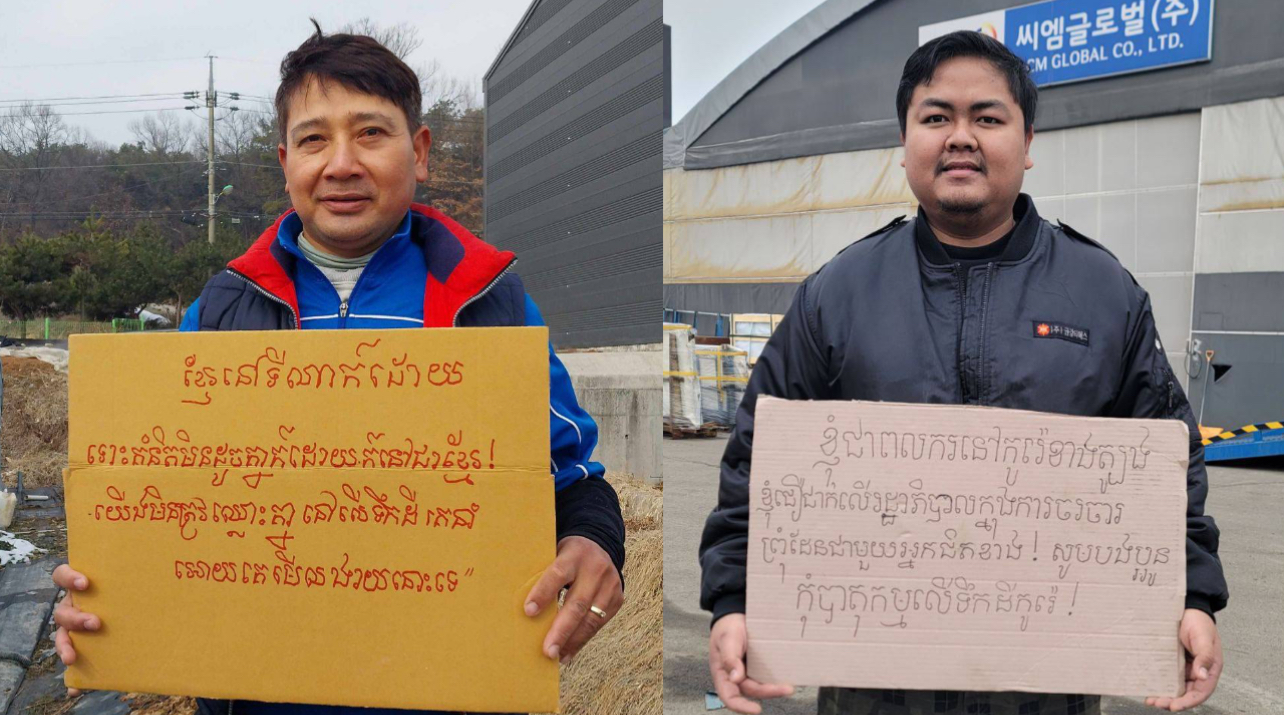 ខ្មែរនៅទីណាក៏ដោយ
ទោះគំនិតមិនដូចគ្នាក៏ដោយ ក៏នៅជាខ្មែរ!
យើងមិនត្រូវឈ្លោះគ្នា នៅលើទឹកដី គេនាំ
អោយគេមើលងាយនោះទេ"
씨엠글로벌(주)
CM GLOBAL CO., LTD.
ខ្ញុំជាពលករនៅកូរ៉េខាងត្បូង
ខ្ញុំជឿជាក់លើរដ្ឋាភិបាលក្នុងការចរចារ
ព្រុំដែនជាមួយអ្នកជិតខាង! សូមបងប្អូន
កុំបាតុកម្មលើទឹកដីកូរ៉េ!